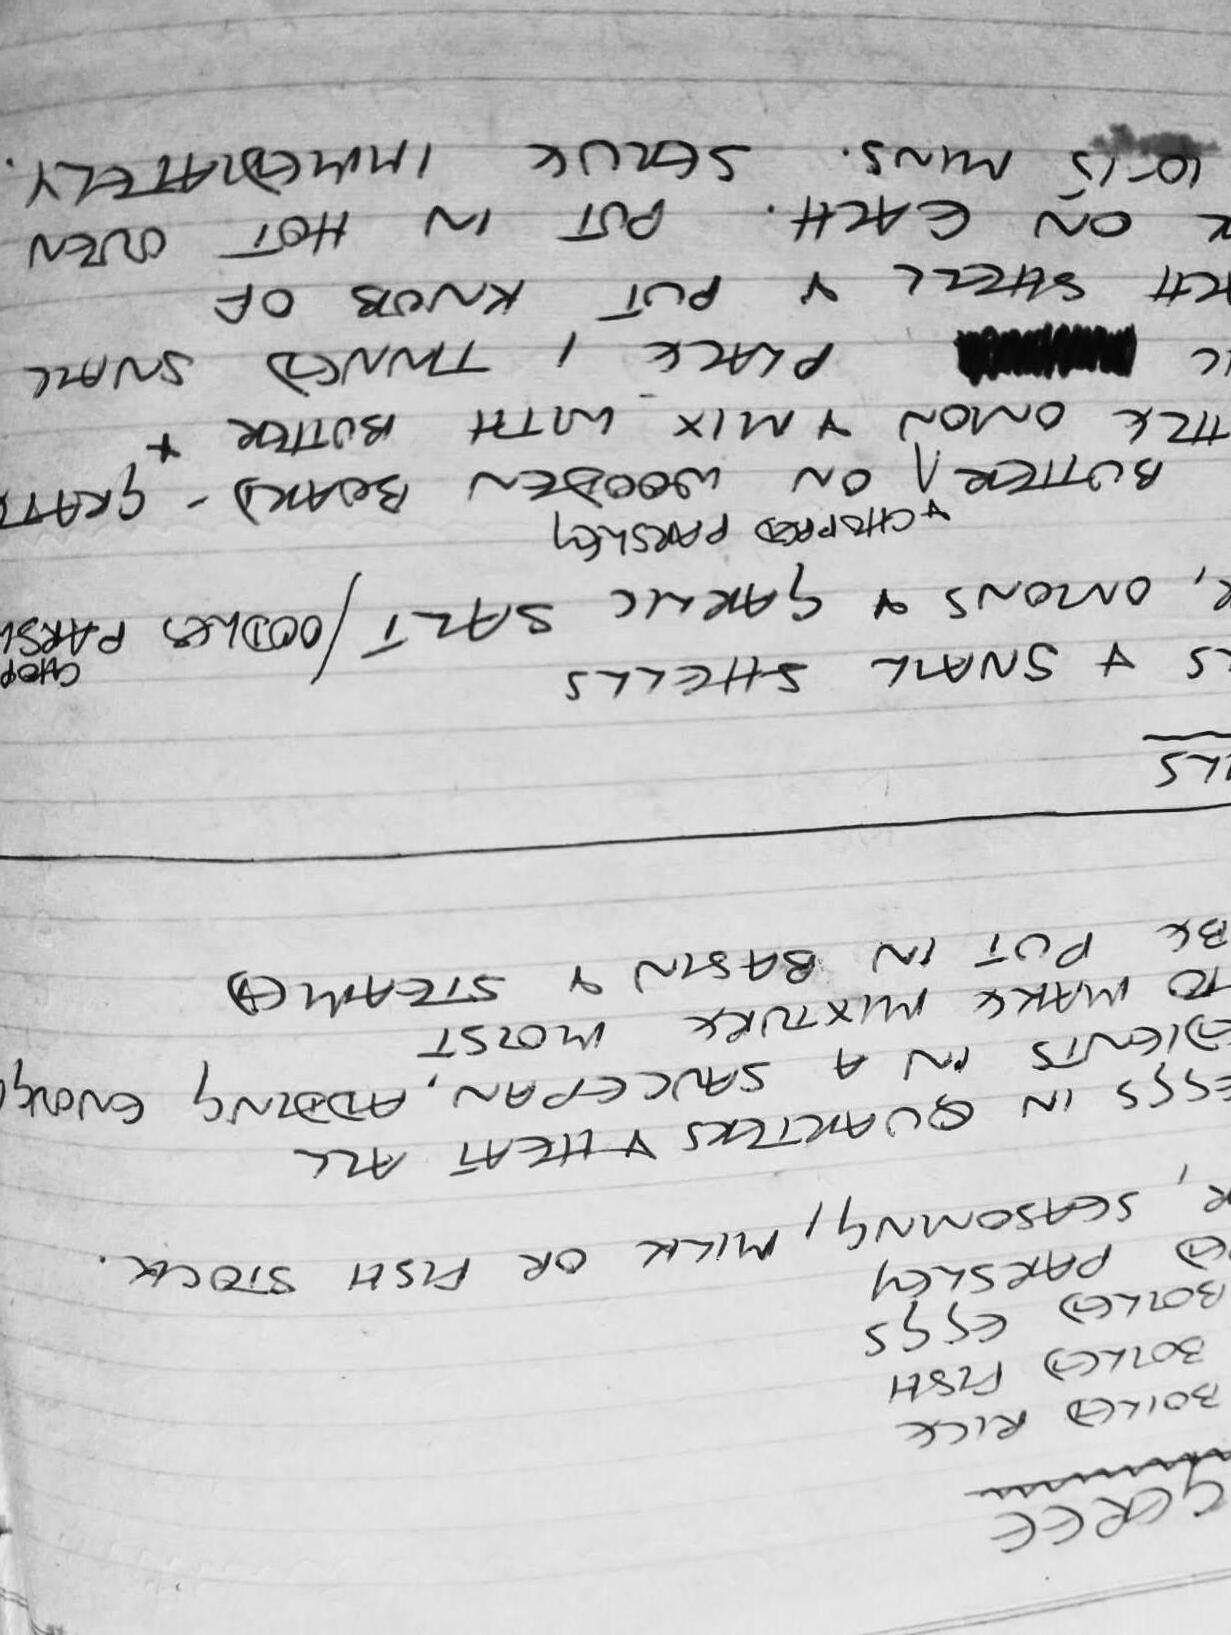 GEREE
BOILED RICE
BOILED FISH
BOILED EGGS
ED PARSLEY
R, SEASONING, MILK OR FISH STOCK.
EGGS IN QUARTERS & HEAT ALL
DIENTS IN A SAUCEPAN, ADDING ENOUGH
TO MAKE MIXTURE MOIST
BE PUT IN BASIN & STEAMED
ILS
LS & SNAIL SHELLS
CHOP
R, ONIONS & GARLIC SALT / OODLES PARSL
& CHOPPED PARSLEY
BUTTER ON WOODEN BOARD - GRATE
ONION & MIX WITH BUTTER &
PLACE 1 TINNED SNAIL
CH SHELL & PUT KNOB OF
ON EACH. PUT IN HOT OVEN
10-15 MINS. SERVE IMMEDIATELY.